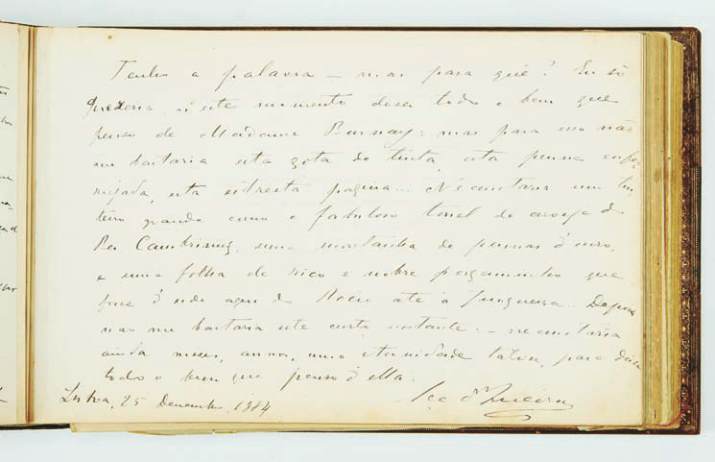 Tenho a palavra – mas para quê? Eu só
quereria n'este momento dizer todo o bem que
penso de Madame Burnay: mas para isso não
me bastaria esta gota de tinta, esta penna
esta pagina... Necessitaria um tin
teiro grande como o fabuloso tonel de cerveja do
Rei Cambrinus, uma montanha de pennas d'ouro,
e uma folha de rico e nobre pergaminho que
fosse d'onde aqui do Rocio até à Junqueira. Depois
não me bastaria este curto instante: – necessitaria
ainda mezes, annos, uma eternidade talvez, para dizer
todo o bem que penso d'ella.
Lisboa, 25 Dezembro, 1884
Eça de Queiroz